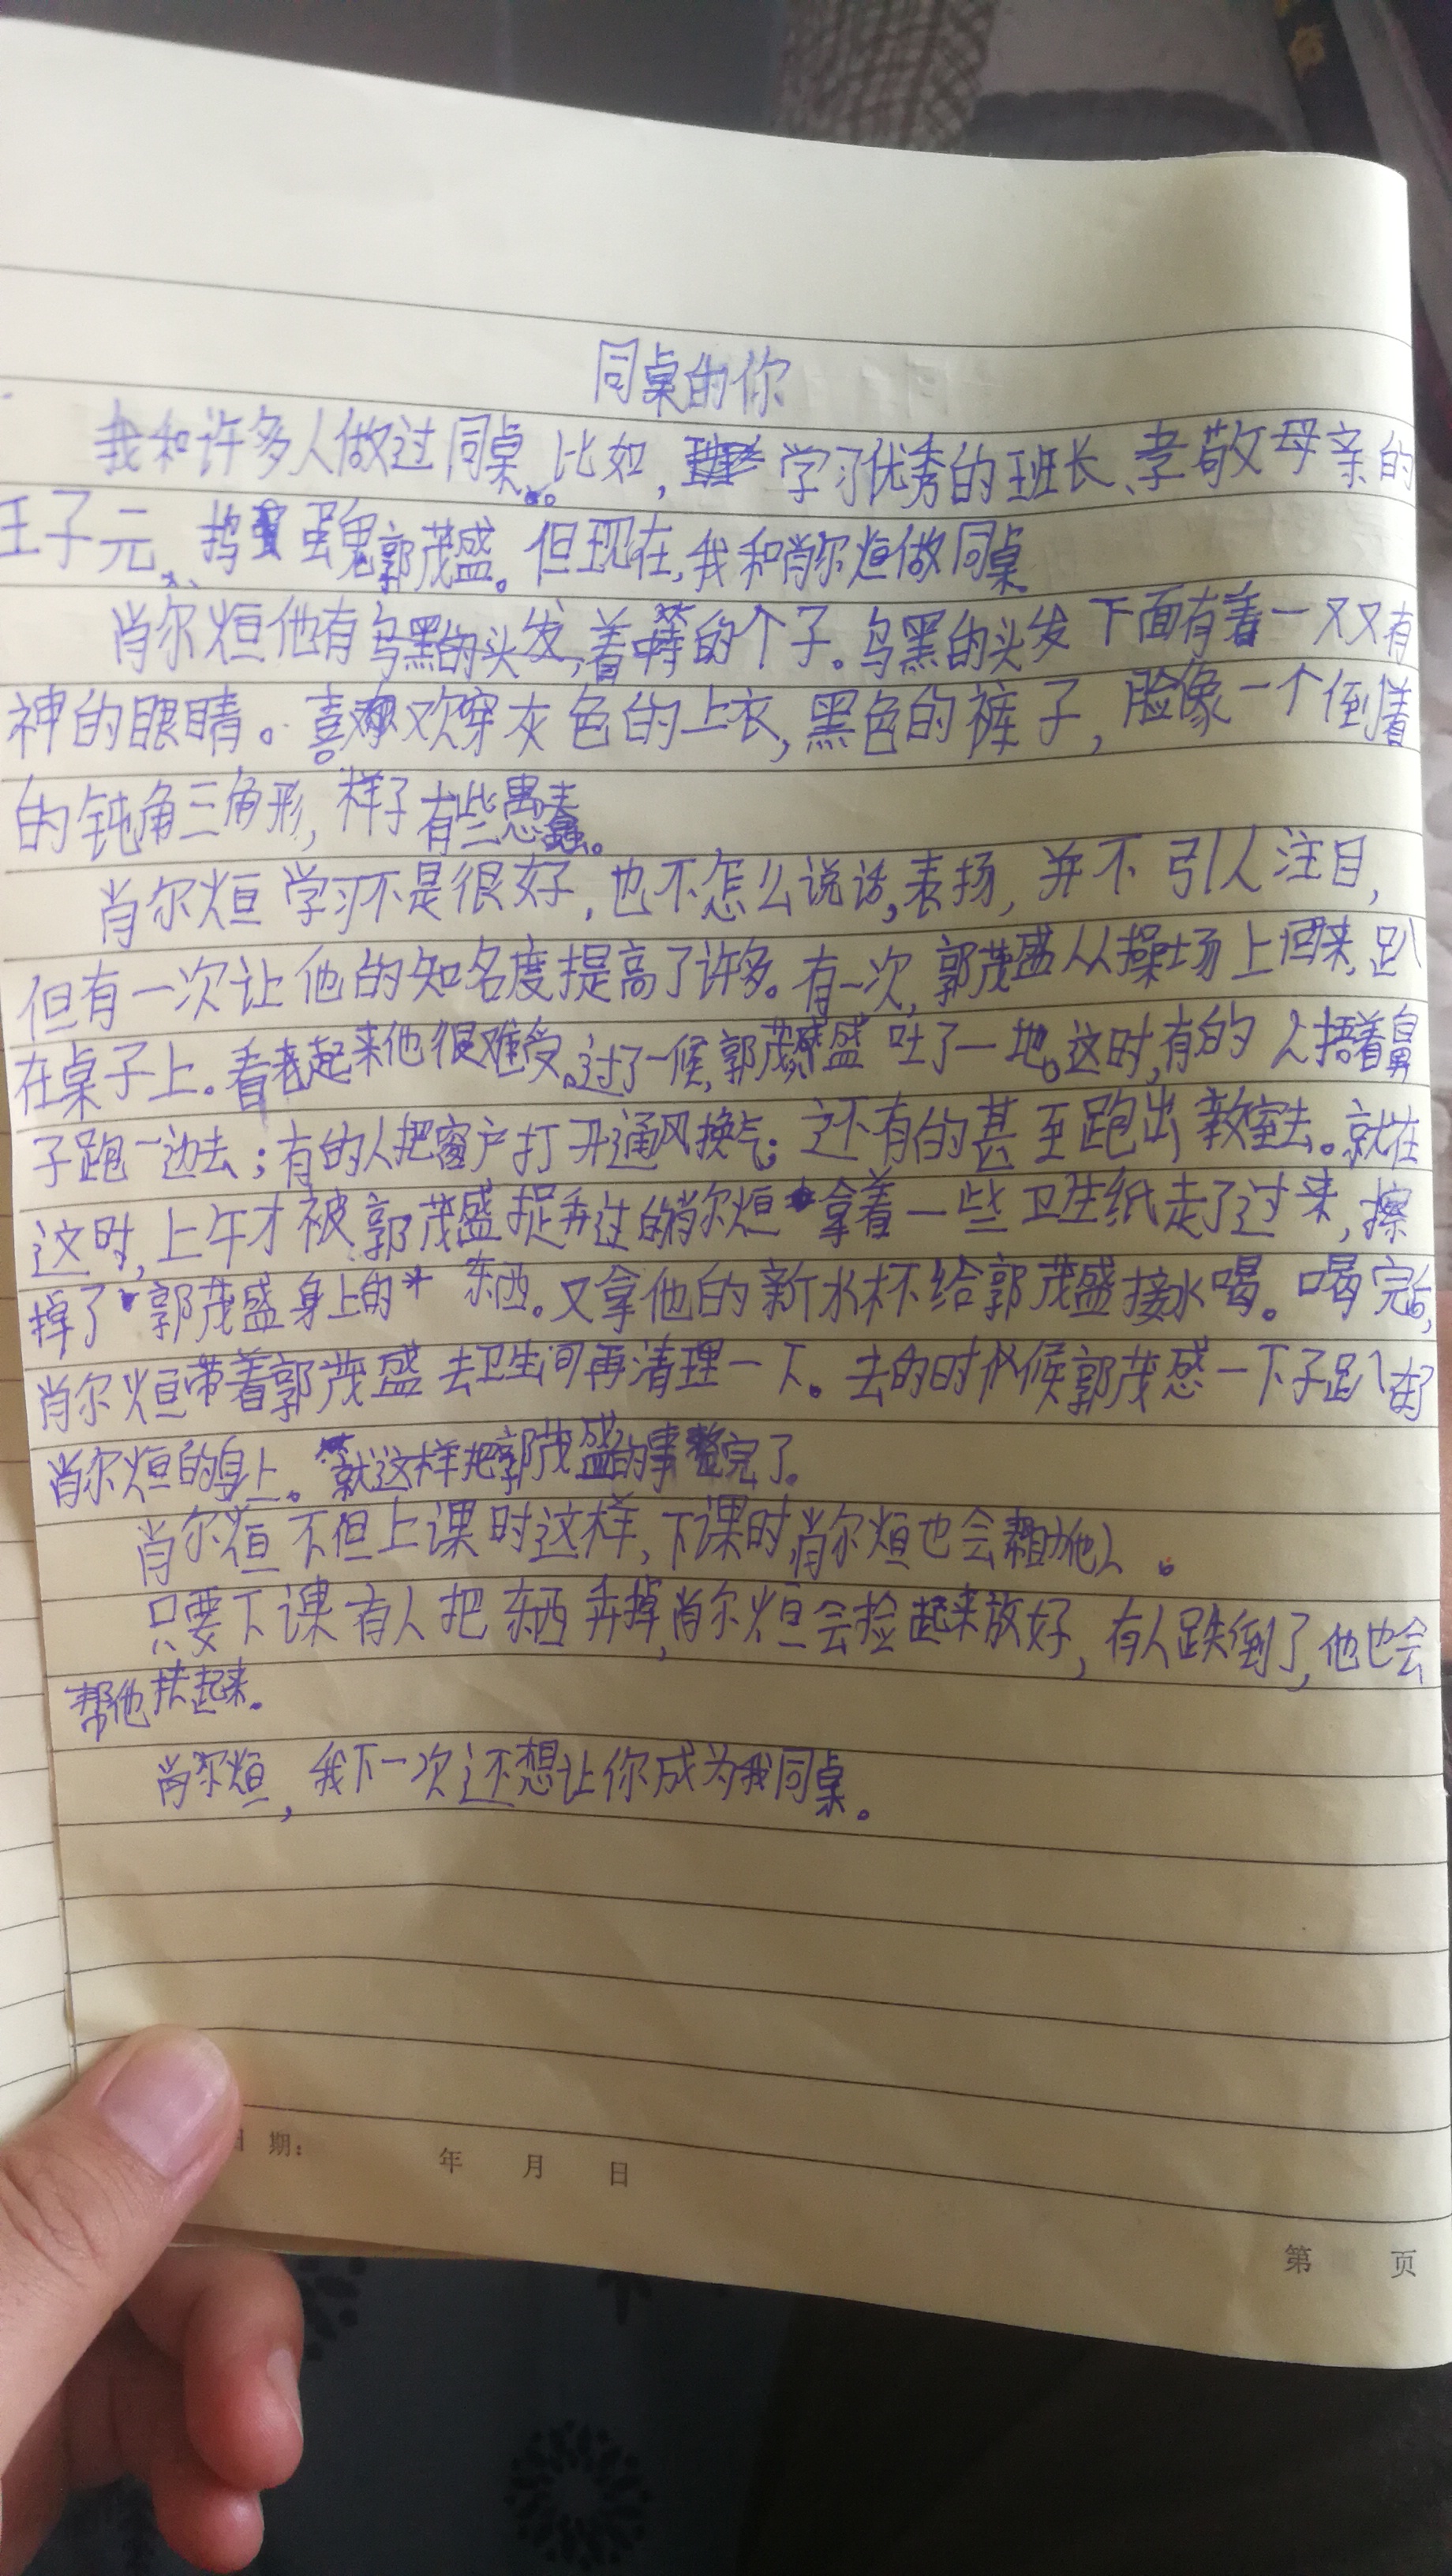 同桌的你
我和许多人做过同桌。比如,学习优秀的班长、孝敬母亲的
王子元、捣蛋鬼郭茂盛。但现在,我和肖尔烜做同桌
肖尔烜他有乌黑的头发,着中等的个子。乌黑的头发下面有着一双又有
神的眼睛。喜欢穿灰色的上衣,黑色的裤子,脸像一个倒着
的钝角三角形,样子有些愚蠢。
肖尔烜学习不是很好,也不怎么说话,表扬,并不引人注目,
但有一次让他的知名度提高了许多。有一次,郭茂盛从操场上回来,趴
在桌子上。看起来他很难受。过了一候,郭茂盛吐了一地。这时,有的人捂着鼻
子跑一边去;有的人把窗户打开通风换气;还有的甚至跑出教室去。就在
这时,上午才被郭茂盛捉弄过的肖尔烜拿着一些卫生纸走了过来,擦
掉了郭茂盛身上的东西。又拿他的新水杯给郭茂盛接水喝。喝完后,
肖尔烜带着郭茂盛去卫生间再清理一下。去的时候郭茂盛一下子趴在了
肖尔烜的身上。就这样把郭茂盛的事整完了。
肖尔烜不但上课时这样,下课时,肖尔烜也会帮助他人。
只要下课有人把东西弄掉,肖尔烜会捡起来放好,有人跌倒了,他也会
帮他扶起来。
肖尔烜,我下一次还想让你成为我同桌。
日期:      年  月  日
第  页